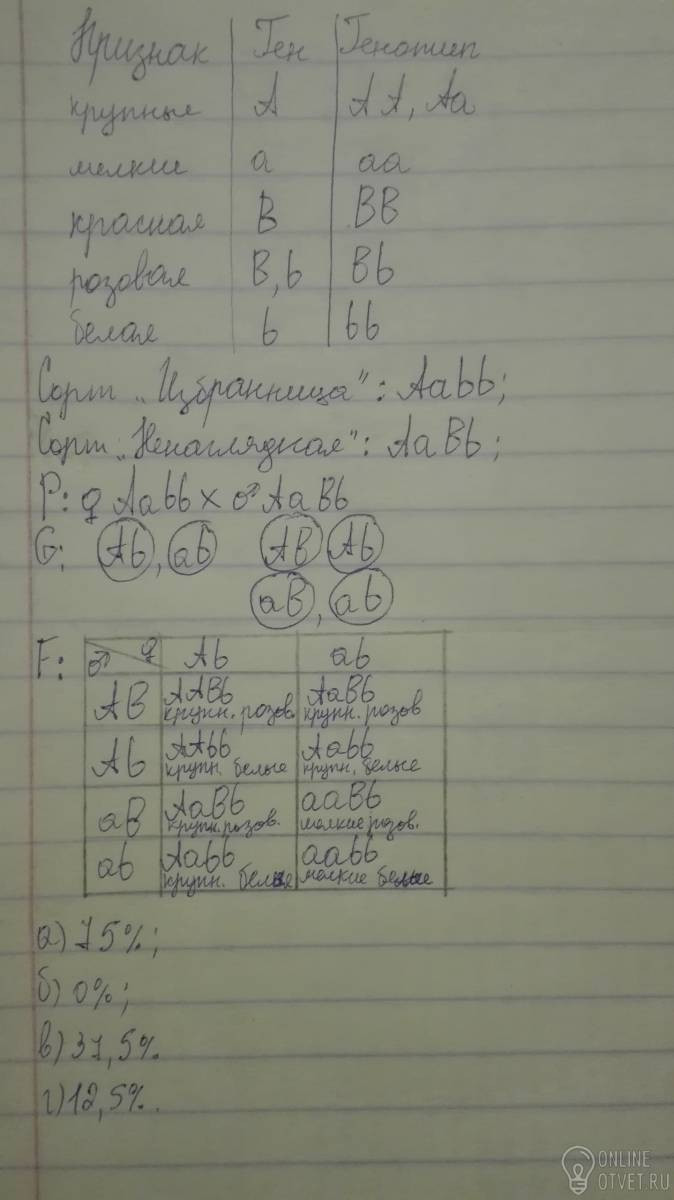 Признак Ген Генотип
крупные А АА, Аа
мелкие а аа
красная В ВВ
розовая В, b Bb
белая b bb
Сорт „Избранница": Aabb;
Сорт „Ненаглядная": AaBb;
P: ♀ Aabb x ♂ AaBb
G: Ab, ab AB Ab
aB, ab
F: ♂ ♀ Ab ab
AB AABb AaBb
крупн. розов. крупн. розов
Ab AAbb Aabb
крупн. белые крупн. белые
aB AaBb aaBb
крупн. розов. мелкие розов.
ab Aabb aabb
крупн. белые мелкие белые
а) 75%;
б) 0%;
в) 37,5%.
г) 12,5%.
ONLINE
OTVET.RU